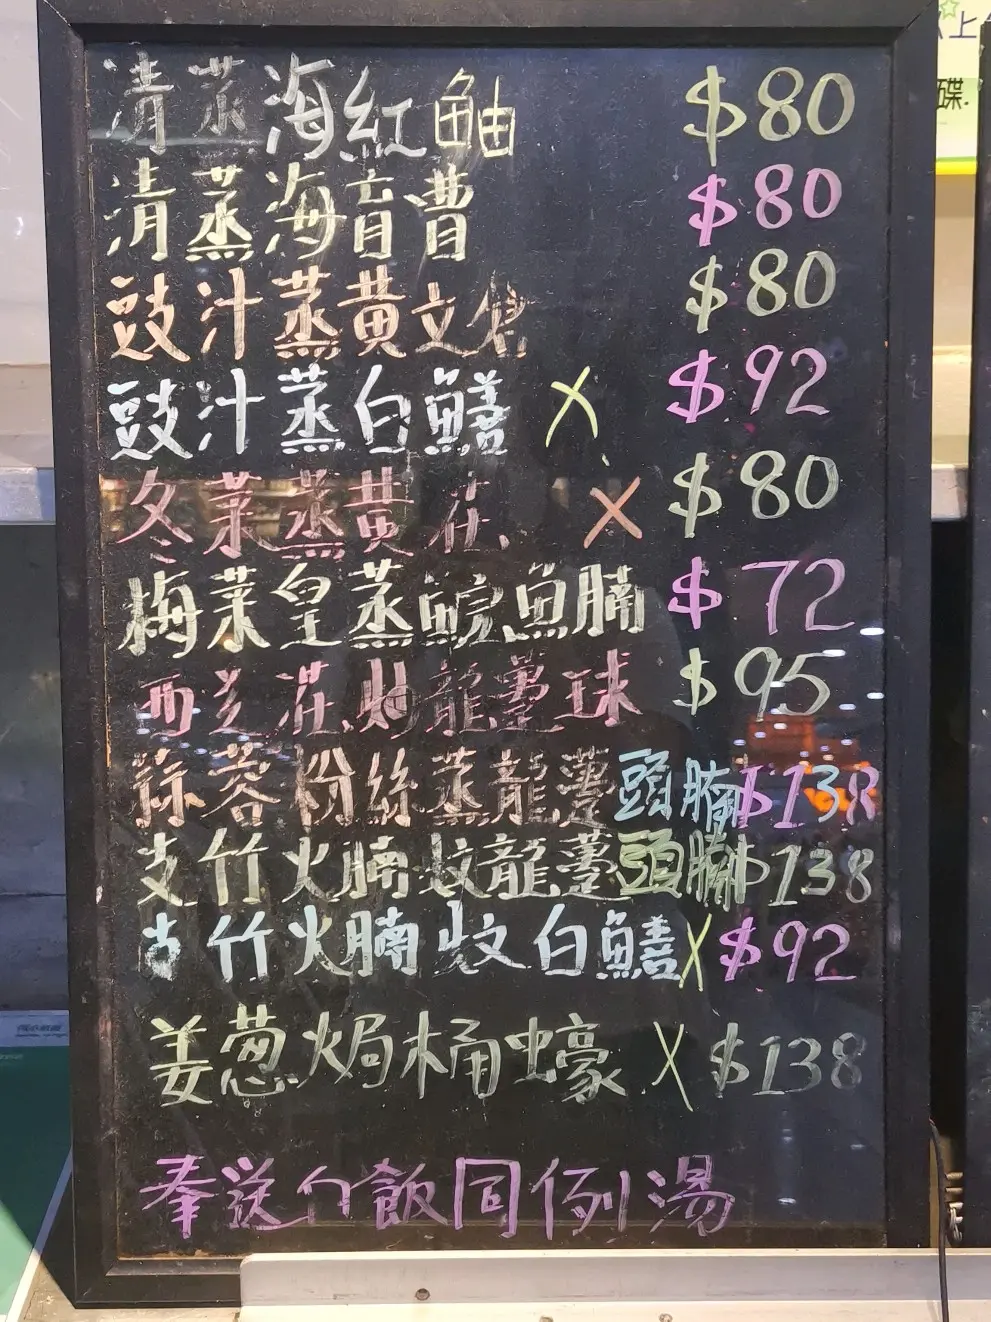 清蒸海紅鮋 $80
清蒸海青曹 $80
豉汁蒸黃文 $80
豉汁蒸白鱔 X $92
冬菜蒸黃花 X $80
梅菜皇蒸鯇魚腩 $72
西芝花炒龍躉球 $95
蒜蓉粉絲蒸龍躉頭腩 $138
支竹火腩炆龍躉頭腩 $138
支竹火腩炆白鱔 X $92
姜葱焗桶蠔 X $138
奉送白飯同例湯
上
碟.